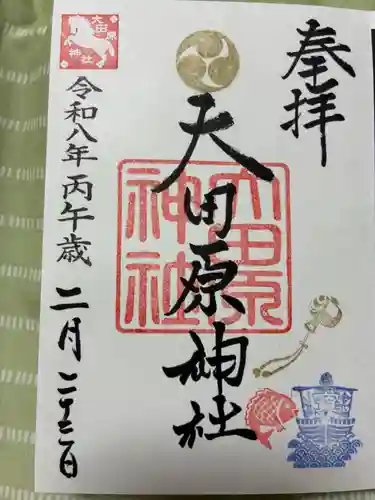 奉拝
大田原神社
大田原神社
令和八年 丙午歳 二月二十二日
大田原神社